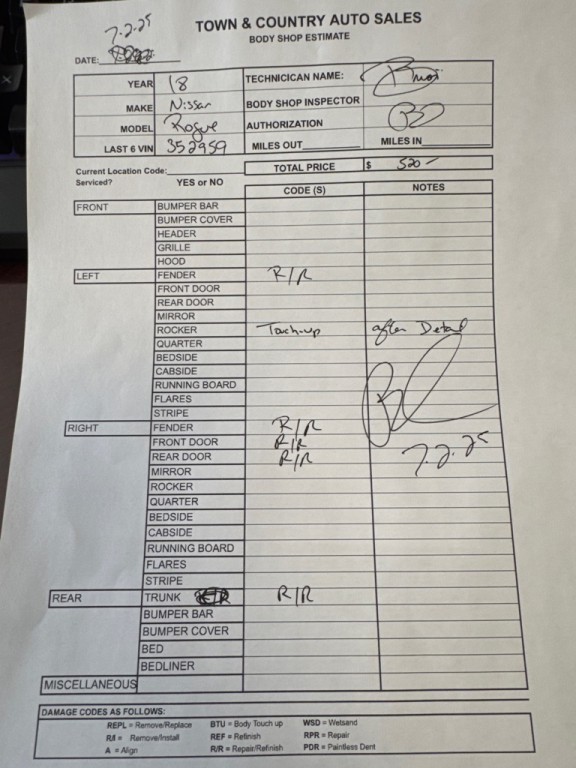 7-2-25
TOWN & COUNTRY AUTO SALES
BODY SHOP ESTIMATE
DATE:
YEAR 18 TECHNICICAN NAME:
MAKE Nissan BODY SHOP INSPECTOR
MODEL Rogue AUTHORIZATION
LAST 6 VIN 352959 MILES OUT MILES IN
Current Location Code: TOTAL PRICE $ 520-
Serviced? YES or NO CODE (S) NOTES
FRONT BUMPER BAR
BUMPER COVER
HEADER
GRILLE
HOOD
LEFT FENDER R/R
FRONT DOOR
REAR DOOR
MIRROR
ROCKER Touch-up after Detail
QUARTER
BEDSIDE
CABSIDE
RUNNING BOARD
FLARES
STRIPE
RIGHT FENDER R/R
FRONT DOOR R/R
REAR DOOR R/R 7.2.25
MIRROR
ROCKER
QUARTER
BEDSIDE
CABSIDE
RUNNING BOARD
FLARES
STRIPE
REAR TRUNK R/R
BUMPER BAR
BUMPER COVER
BED
BEDLINER
MISCELLANEOUS
DAMAGE CODES AS FOLLOWS:
REPL = Remove/Replace BTU = Body Touch up WSD = Wetsand
R/I = Remove/Install REF = Refinish RPR = Repair
A = Align R/R = Repair/Refinish PDR = Paintless Dent